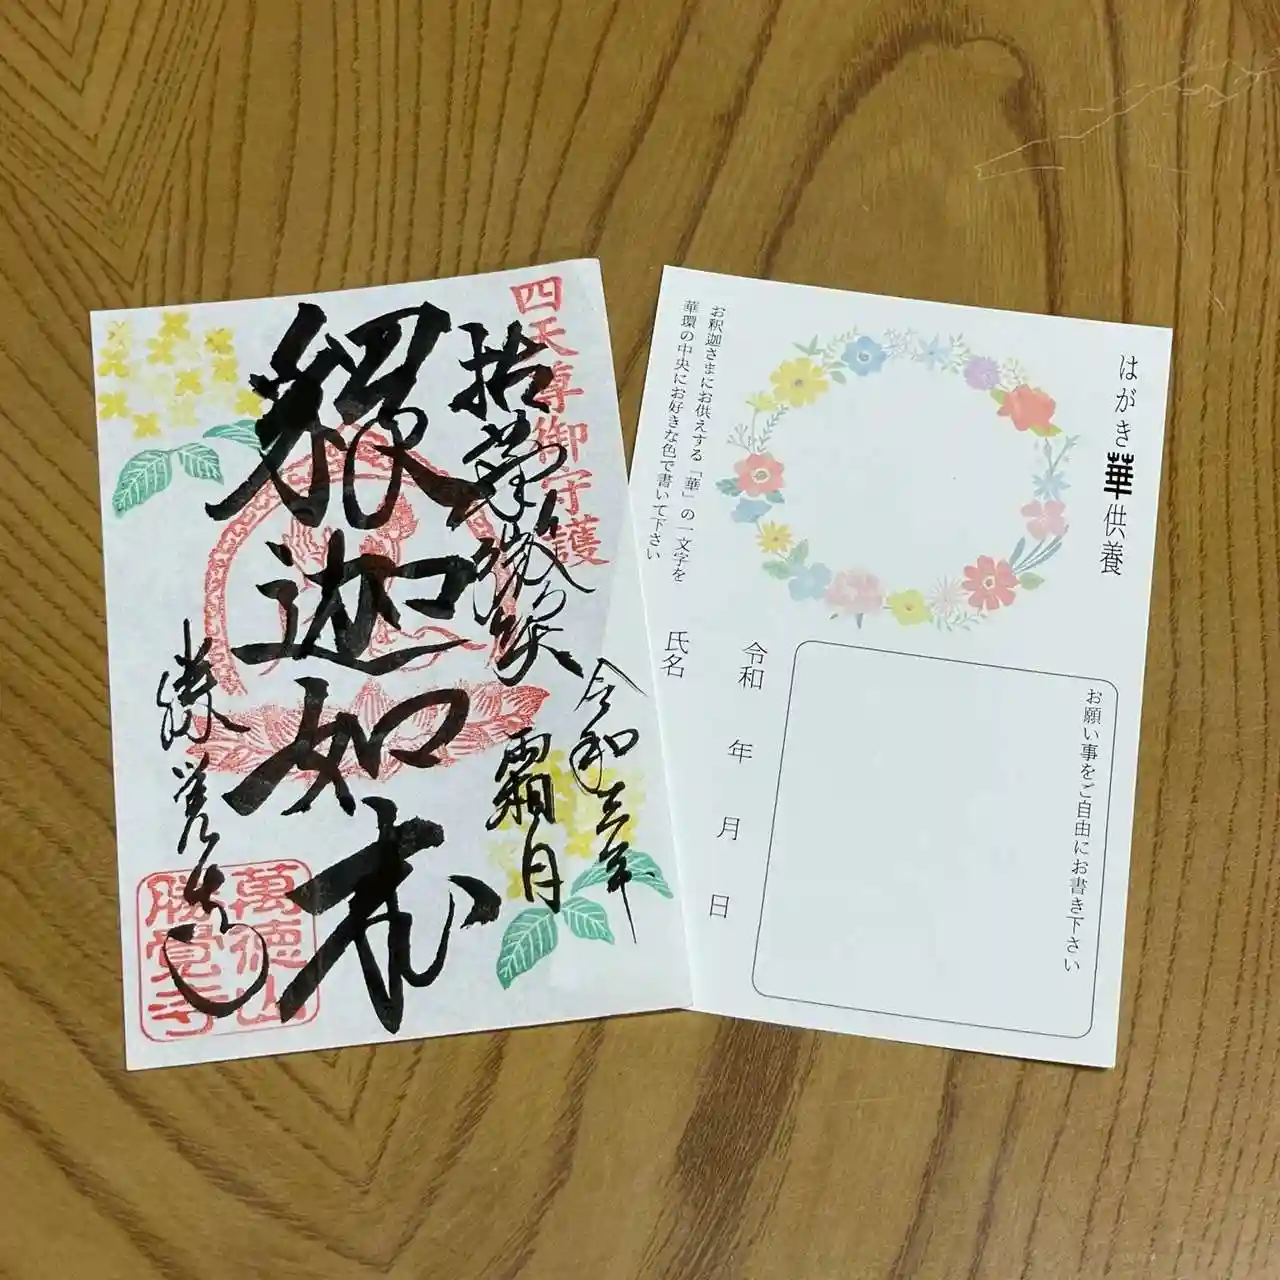 四天尊御守護
拈華微笑
令和三年
霜月
釋迦如来
勝覚寺
萬徳山
勝覺寺
はがき華供養
お釈迦さまにお供えする「華」の一文字を
華環の中央にお好きな色で書いて下さい
お願い事をご自由にお書き下さい
令和 年 月 日
氏名